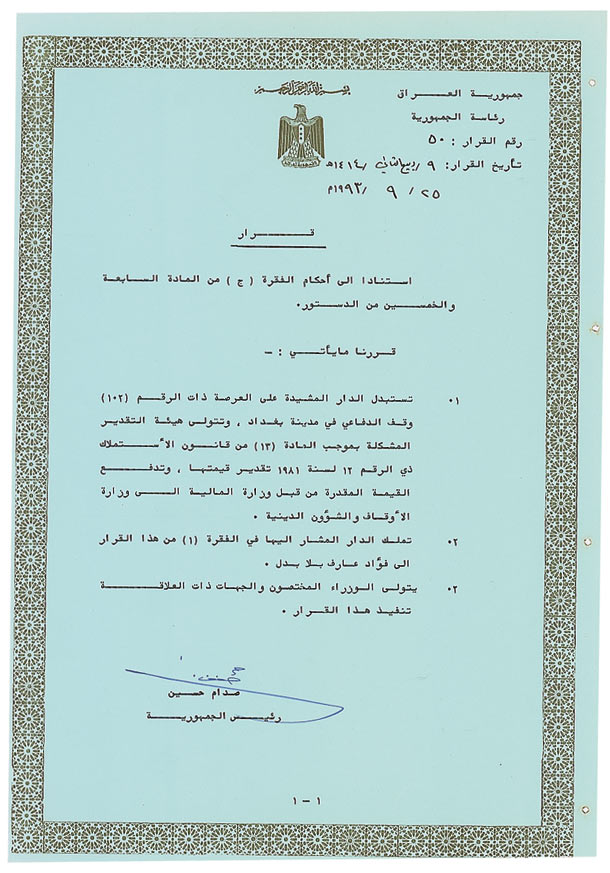 بسم الله الرحمن الرحيم
جمهورية العراق
رئاسة الجمهورية
رقم القرار : ٥٠
تأريخ القرار: ٩ / ربيع الثاني / ١٤١٤هـ
٢٥ / ٩ / ١٩٩٣م
قرار
استنادا الى أحكام الفقرة ( ج ) من المادة السابعة
والخمسين من الدستور.
قررنا مايأتي : -
١. تستبدل الدار المشيدة على العرصة ذات الرقم (١٠٢)
وقف الدفاعي في مدينة بغداد ، وتتولى هيئة التقدير
المشكلة بموجب المادة (١٣) من قانون الأستملاك
ذي الرقم ١٢ لسنة ١٩٨١ تقدير قيمتها ، وتدفع
القيمة المقدرة من قبل وزارة المالية الى وزارة
الأوقاف والشؤون الدينية .
٢. تملك الدار المشار اليها في الفقرة (١) من هذا القرار
الى فؤاد عارف بلا بدل .
٣. يتولى الوزراء المختصون والجهات ذات العلاقة
تنفيذ هذا القرار .
صدام حسين
رئيس الجمهورية
١ - ١